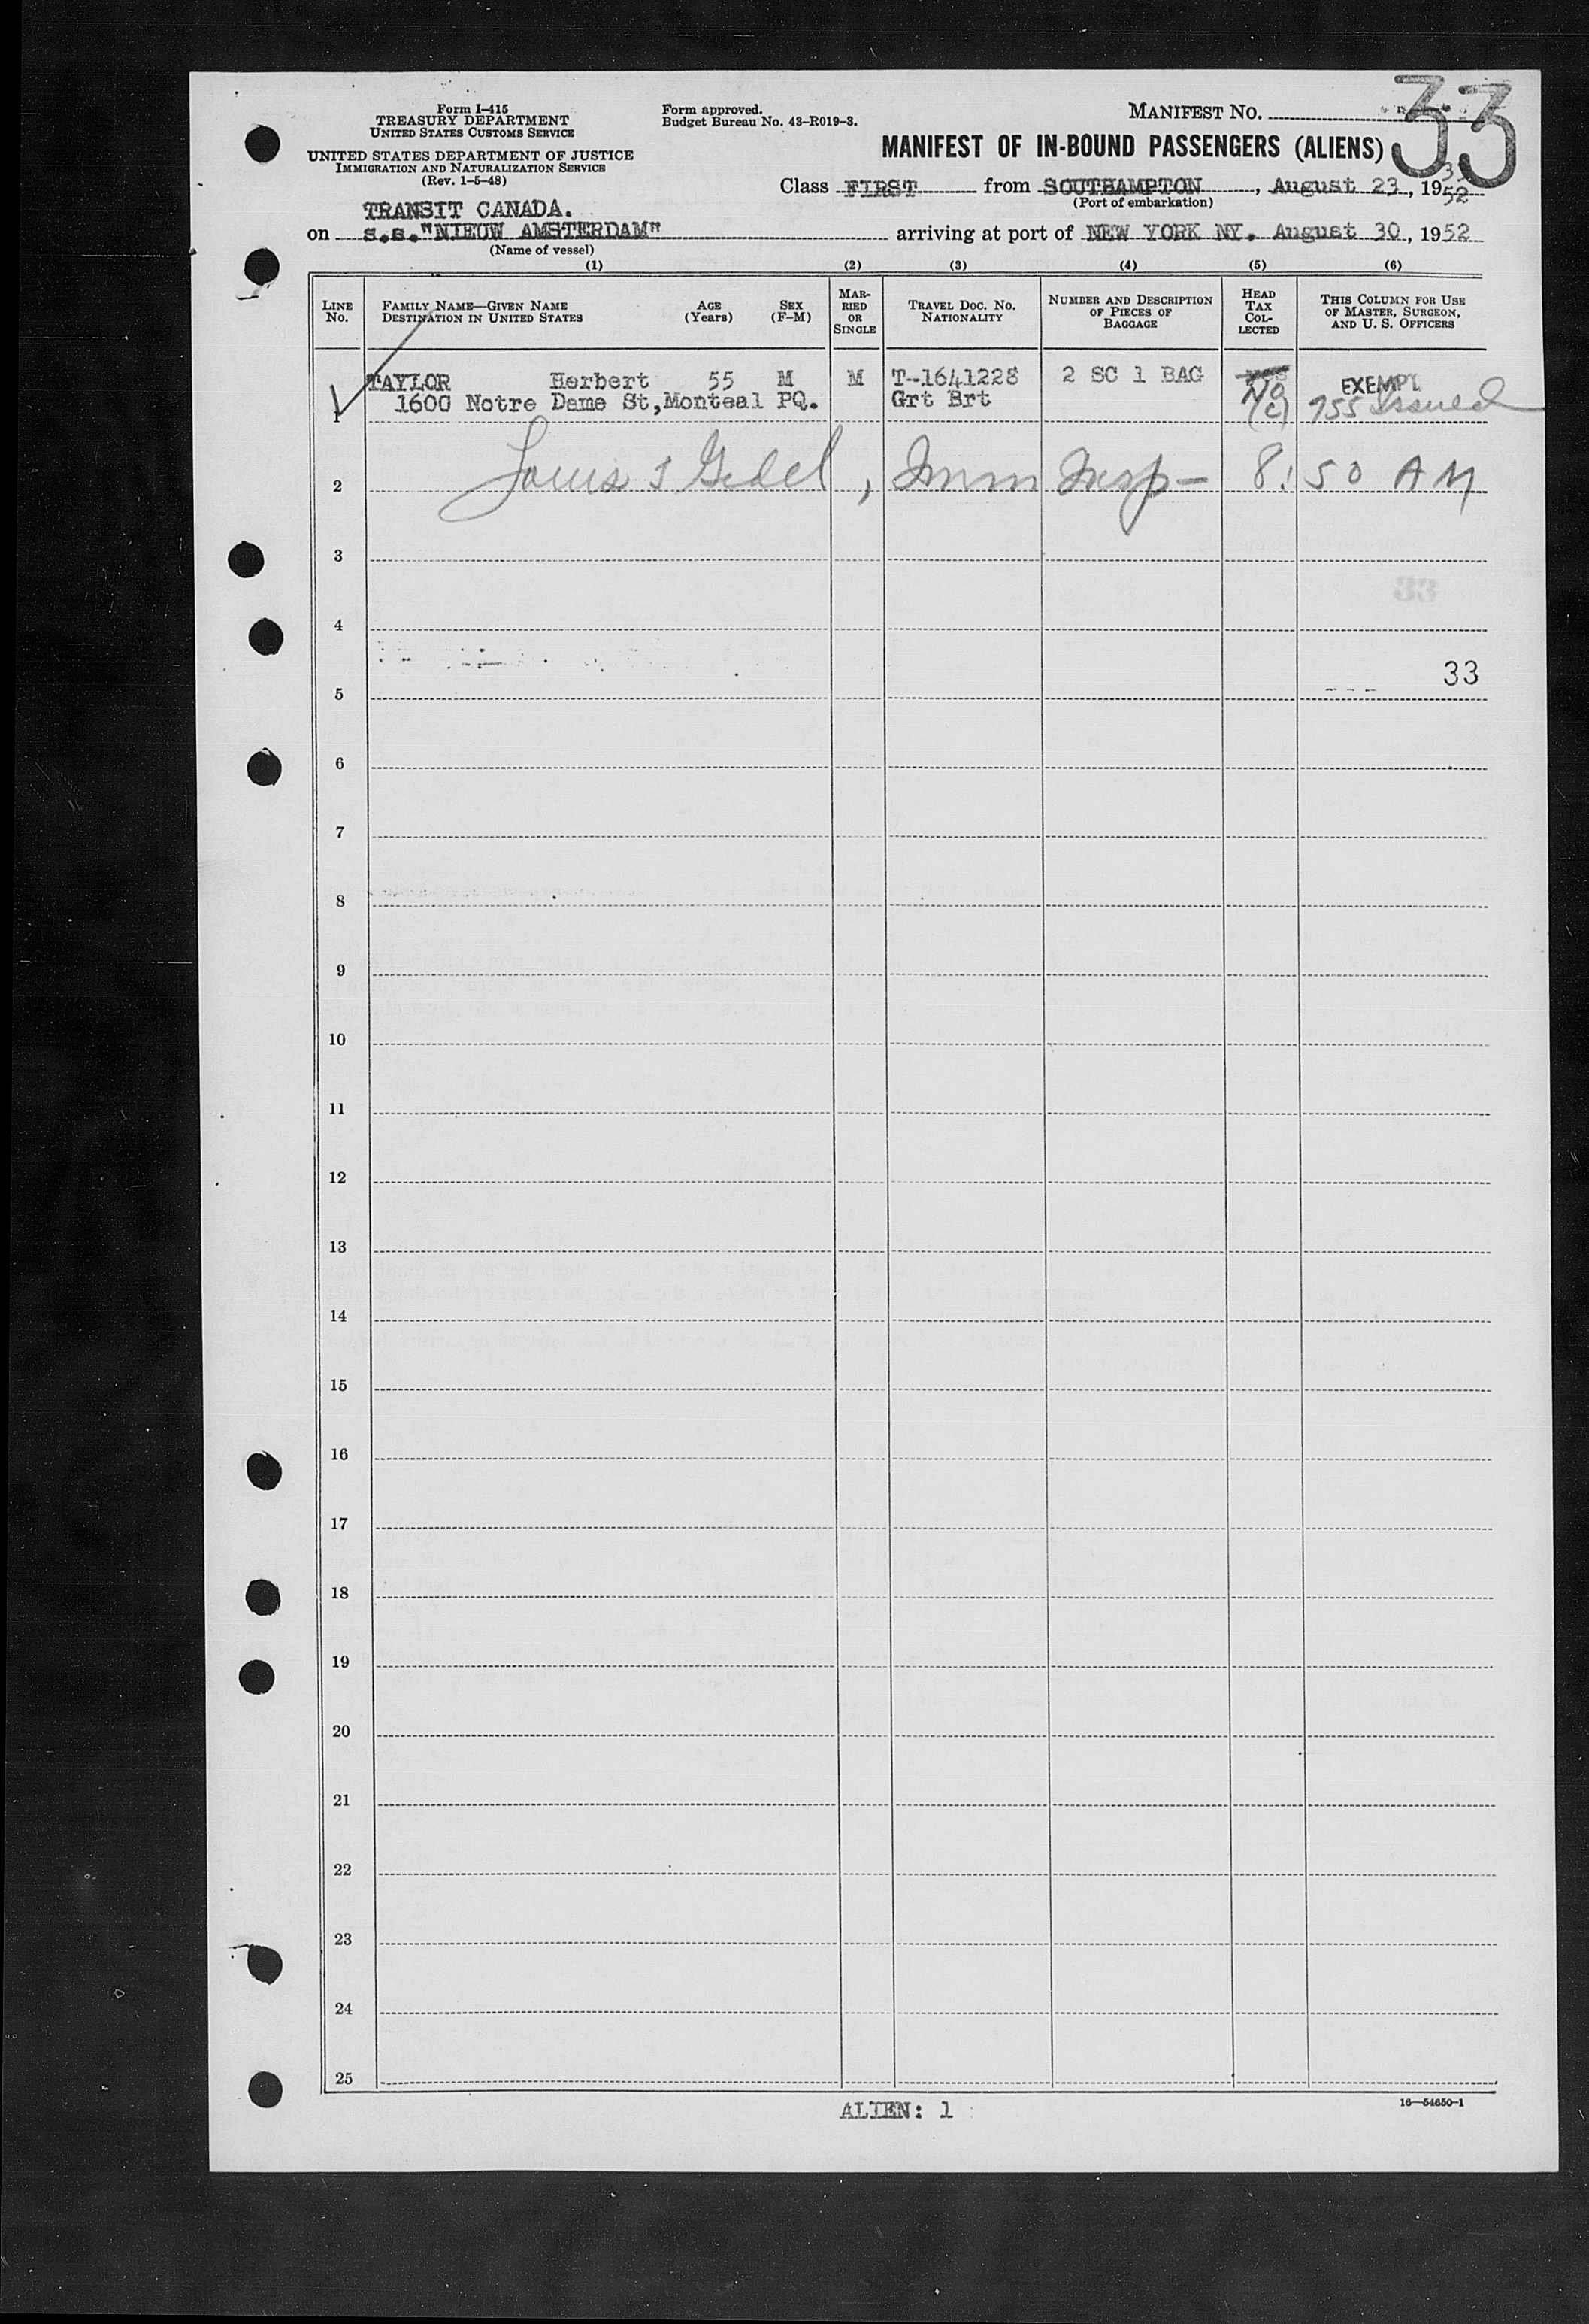 Form I-415
TREASURY DEPARTMENT
UNITED STATES CUSTOMS SERVICE
UNITED STATES DEPARTMENT OF JUSTICE
IMMIGRATION AND NATURALIZATION SERVICE
(Rev. 1-5-48)
Form approved.
Budget Bureau No. 43-R019-3.
MANIFEST NO.
33
MANIFEST OF IN-BOUND PASSENGERS (ALIENS)
Class FIRST from SOUTHAMPTON, August 23, 1952
(Port of embarkation)
TRANSIT CANADA.
on s.s."NIEUW AMSTERDAM" arriving at port of NEW YORK NY. August 30, 1952
(Name of vessel)
(1) (2) (3) (4) (5) (6)
LINE NO.
FAMILY NAME—GIVEN NAME
DESTINATION IN UNITED STATES
AGE (Years)
SEX (F-M)
MARRIED OR SINGLE
TRAVEL DOC. NO. NATIONALITY
NUMBER AND DESCRIPTION OF PIECES OF BAGGAGE
HEAD TAX COLLECTED
THIS COLUMN FOR USE OF MASTER, SURGEON, AND U. S. OFFICERS
1 TAYLOR Herbert 55 M M T-1641228 2 SC 1 BAG No EXEMPT
1600 Notre Dame St,Monteal PQ. Grt Brt (c) 755 issued
2 Louis J Gedel, Imm Insp- 8:50 AM
3
4
33
5
6
7
8
9
10
11
12
13
14
15
16
17
18
19
20
21
22
23
24
25
ALIEN: 1
16—54650-1